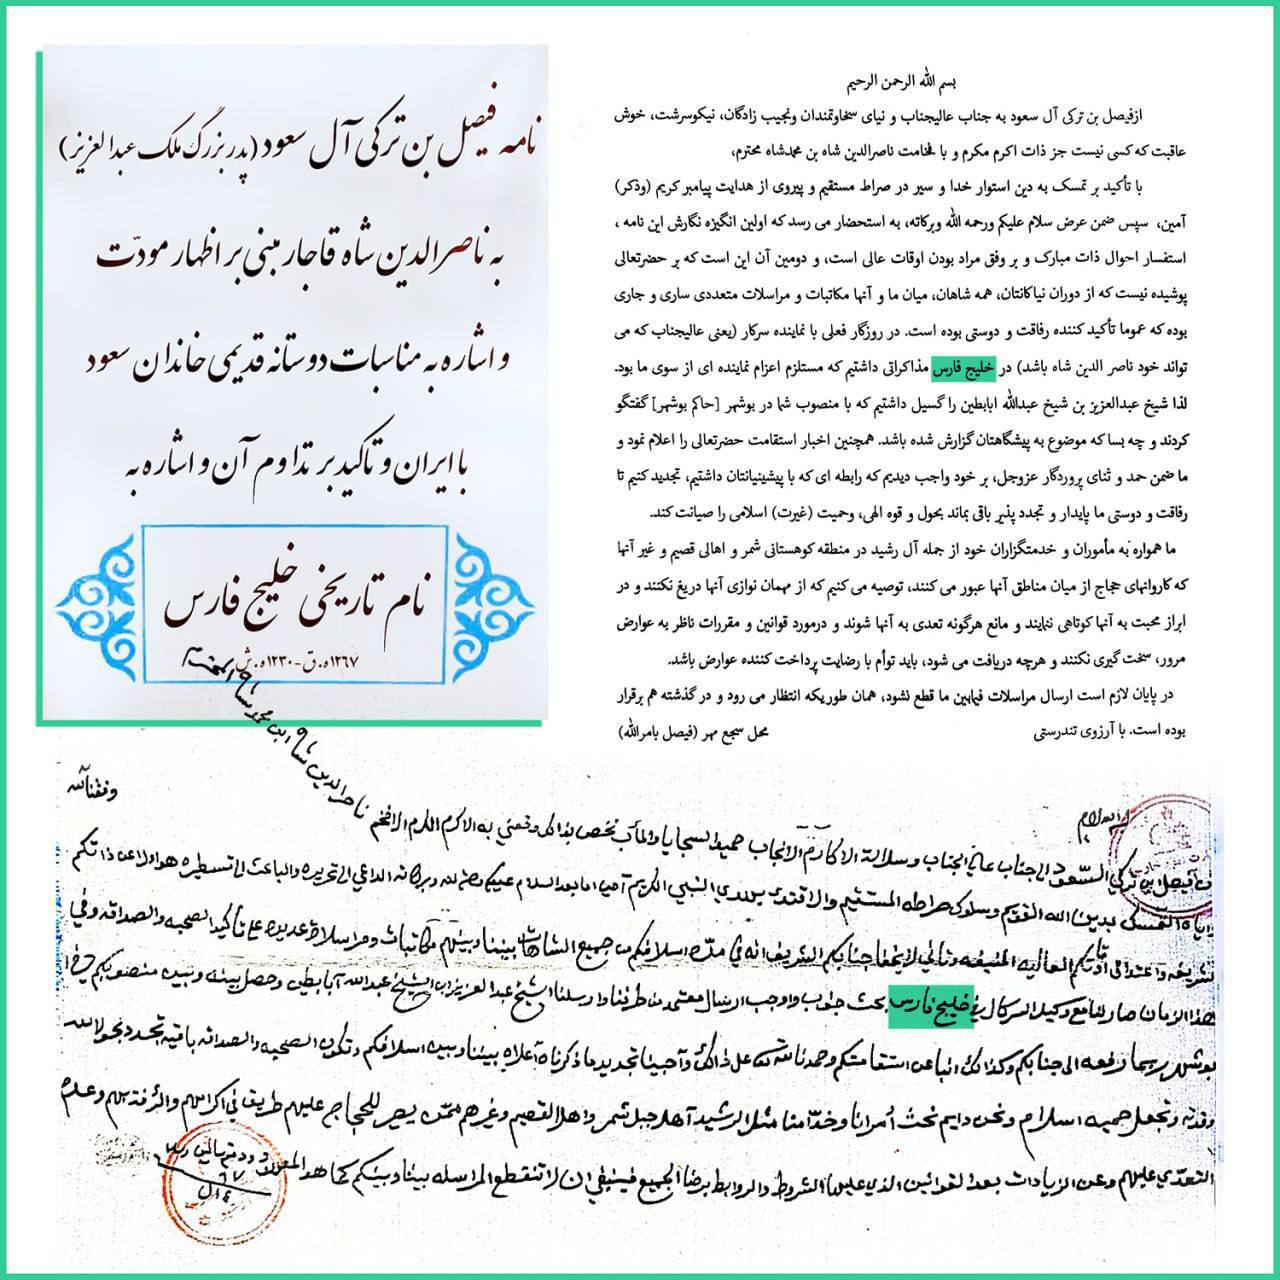 نامه فیصل بن ترکی آل سعود (پدربزرگ ملک عبدالعزیز)
به ناصرالدین شاه قاجار مبنی بر اظهار مودّت
و اشاره به مناسبات دوستانه قدیمی خاندان سعود
با ایران و تاکید بر تداوم آن و اشاره به
نام تاریخی خلیج فارس
۱۲۶۷ه.ق-۱۲۳۰ه.ش
بسم الله الرحمن الرحیم
ازفیصل بن ترکی آل سعود به جناب عالیجناب و نیای سخاوتمندان ونجیب زادگان، نیکوسرشت، خوش
عاقبت که کسی نیست جز ذات اکرم مکرم و با فخامت ناصرالدین شاه بن محمدشاه محترم،
با تأکید بر تمسک به دین استوار خدا و سیر در صراط مستقیم و پیروی از هدایت پیامبر کریم (وذکر)
آمین، سپس ضمن عرض سلام علیکم ورحمه الله وبرکاته، به استحضار می رسد که اولین انگیزه نگارش این نامه ،
استفسار احوال ذات مبارک و بر وفق مراد بودن اوقات عالی است، و دومین آن این است که بر حضرتعالی
پوشیده نیست که از دوران نیاکانتان، همه شاهان، میان ما و آنها مکاتبات و مراسلات متعددی ساری و جاری
بوده که عموما تأکید کننده رفاقت و دوستی بوده است. در روزگار فعلی با نماینده سرکار (یعنی عالیجناب که می
تواند خود ناصر الدین شاه باشد) در خلیج فارس مذاکراتی داشتیم که مستلزم اعزام نماینده ای از سوی ما بود.
لذا شیخ عبدالعزیز بن شیخ عبدالله ابابطین را گسیل داشتیم که با منصوب شما در بوشهر [حاکم بوشهر] گفتگو
کردند و چه بسا که موضوع به پیشگاهتان گزارش شده باشد. همچنین اخبار استقامت حضرتعالی را اعلام نمود و
ما ضمن حمد و ثنای پروردگار عزوجل، بر خود واجب دیدیم که رابطه ای که با پیشینیانتان داشتیم، تجدید کنیم تا
رفاقت و دوستی ما پایدار و تجدد پذیر باقی بماند بحول و قوه الهی، وحمیت (غیرت) اسلامی را صیانت کند.
ما همواره به مأموران و خدمتگزاران خود از جمله آل رشید در منطقه کوهستانی شمر و اهالی قصیم و غیر آنها
که کاروانهای حجاج از میان مناطق آنها عبور می کنند، توصیه می کنیم که از مهمان نوازی آنها دریغ نکنند و در
ابراز محبت به آنها کوتاهی ننمایند و مانع هرگونه تعدی به آنها شوند و درمورد قوانین و مقررات ناظر به عوارض
مرور، سخت گیری نکنند و هرچه دریافت می شود، باید توأم با رضایت پرداخت کننده عوارض باشد.
در پایان لازم است ارسال مراسلات فیمابین ما قطع نشود، همان طوریکه انتظار می رود و در گذشته هم برقرار
بوده است. با آرزوی تندرستی محل سجع مهر (فیصل بامرالله)
ناصر الدین شاه ابن محمد شاه المحترم
فیصل بن ترکی السعود الی جناب عالی الجناب وسلالة الاکارم الانجاب حمید السجایا والمآب نخص بذالک ونعنی به الاکرم المکرم الافخم
التمسک بدین الله القدیم وسلوک صراطه المستقیم والاقتدی بهدی النبی الکریم آمین اما بعد السلام علیکم ورحمة الله وبرکاته الداعی الی تحریره والباعث الی تسطیره هو اولا عن ذاتکم
العالیه المنیفه وثانی لا یخفا جنابکم الشریف انه فی مدة اسلافکم من جمیع الشاهات بیننا وبینهم مکاتبات ومراسلات عدیده علی تأکید الصحبه والصداقه وفی
هذا الزمان صار لنا مع وکیل السرکال فی خلیج فارس بحث جنوب واوجب ارسال معتمد من طرفنا وارسلنا الشیخ عبد العزیز ابن الشیخ عبدالله آبابطین وحصل بینه وبین منصوبکم
بوشهر ربما رفعه الی جنابکم وکذالک انبا عن استقامتکم وحمدنا الله علی ذالک وأحبینا تجدید ما ذکرناه اعلاه بیننا وبین اسلافکم وتکون الصحبه والصداقه باقیه تجدد بحول الله
وقدرته وتجعل حمیه اسلام ونحن دایم نحث أمرانا وخدامنا مثل الرشید أهل جبل شمر واهل القصیم وغیرهم ممن یصیر للحجاج علیهم طریق فی اکرامهم والرفة بهم وعدم
التعدی علیهم وعن الزیادات بعد القوانین الذی علیها الشروط والروابط برضا الجمیع فینبغی ان لا تنقطع المراسله بیننا وبینکم کما هو المعروف